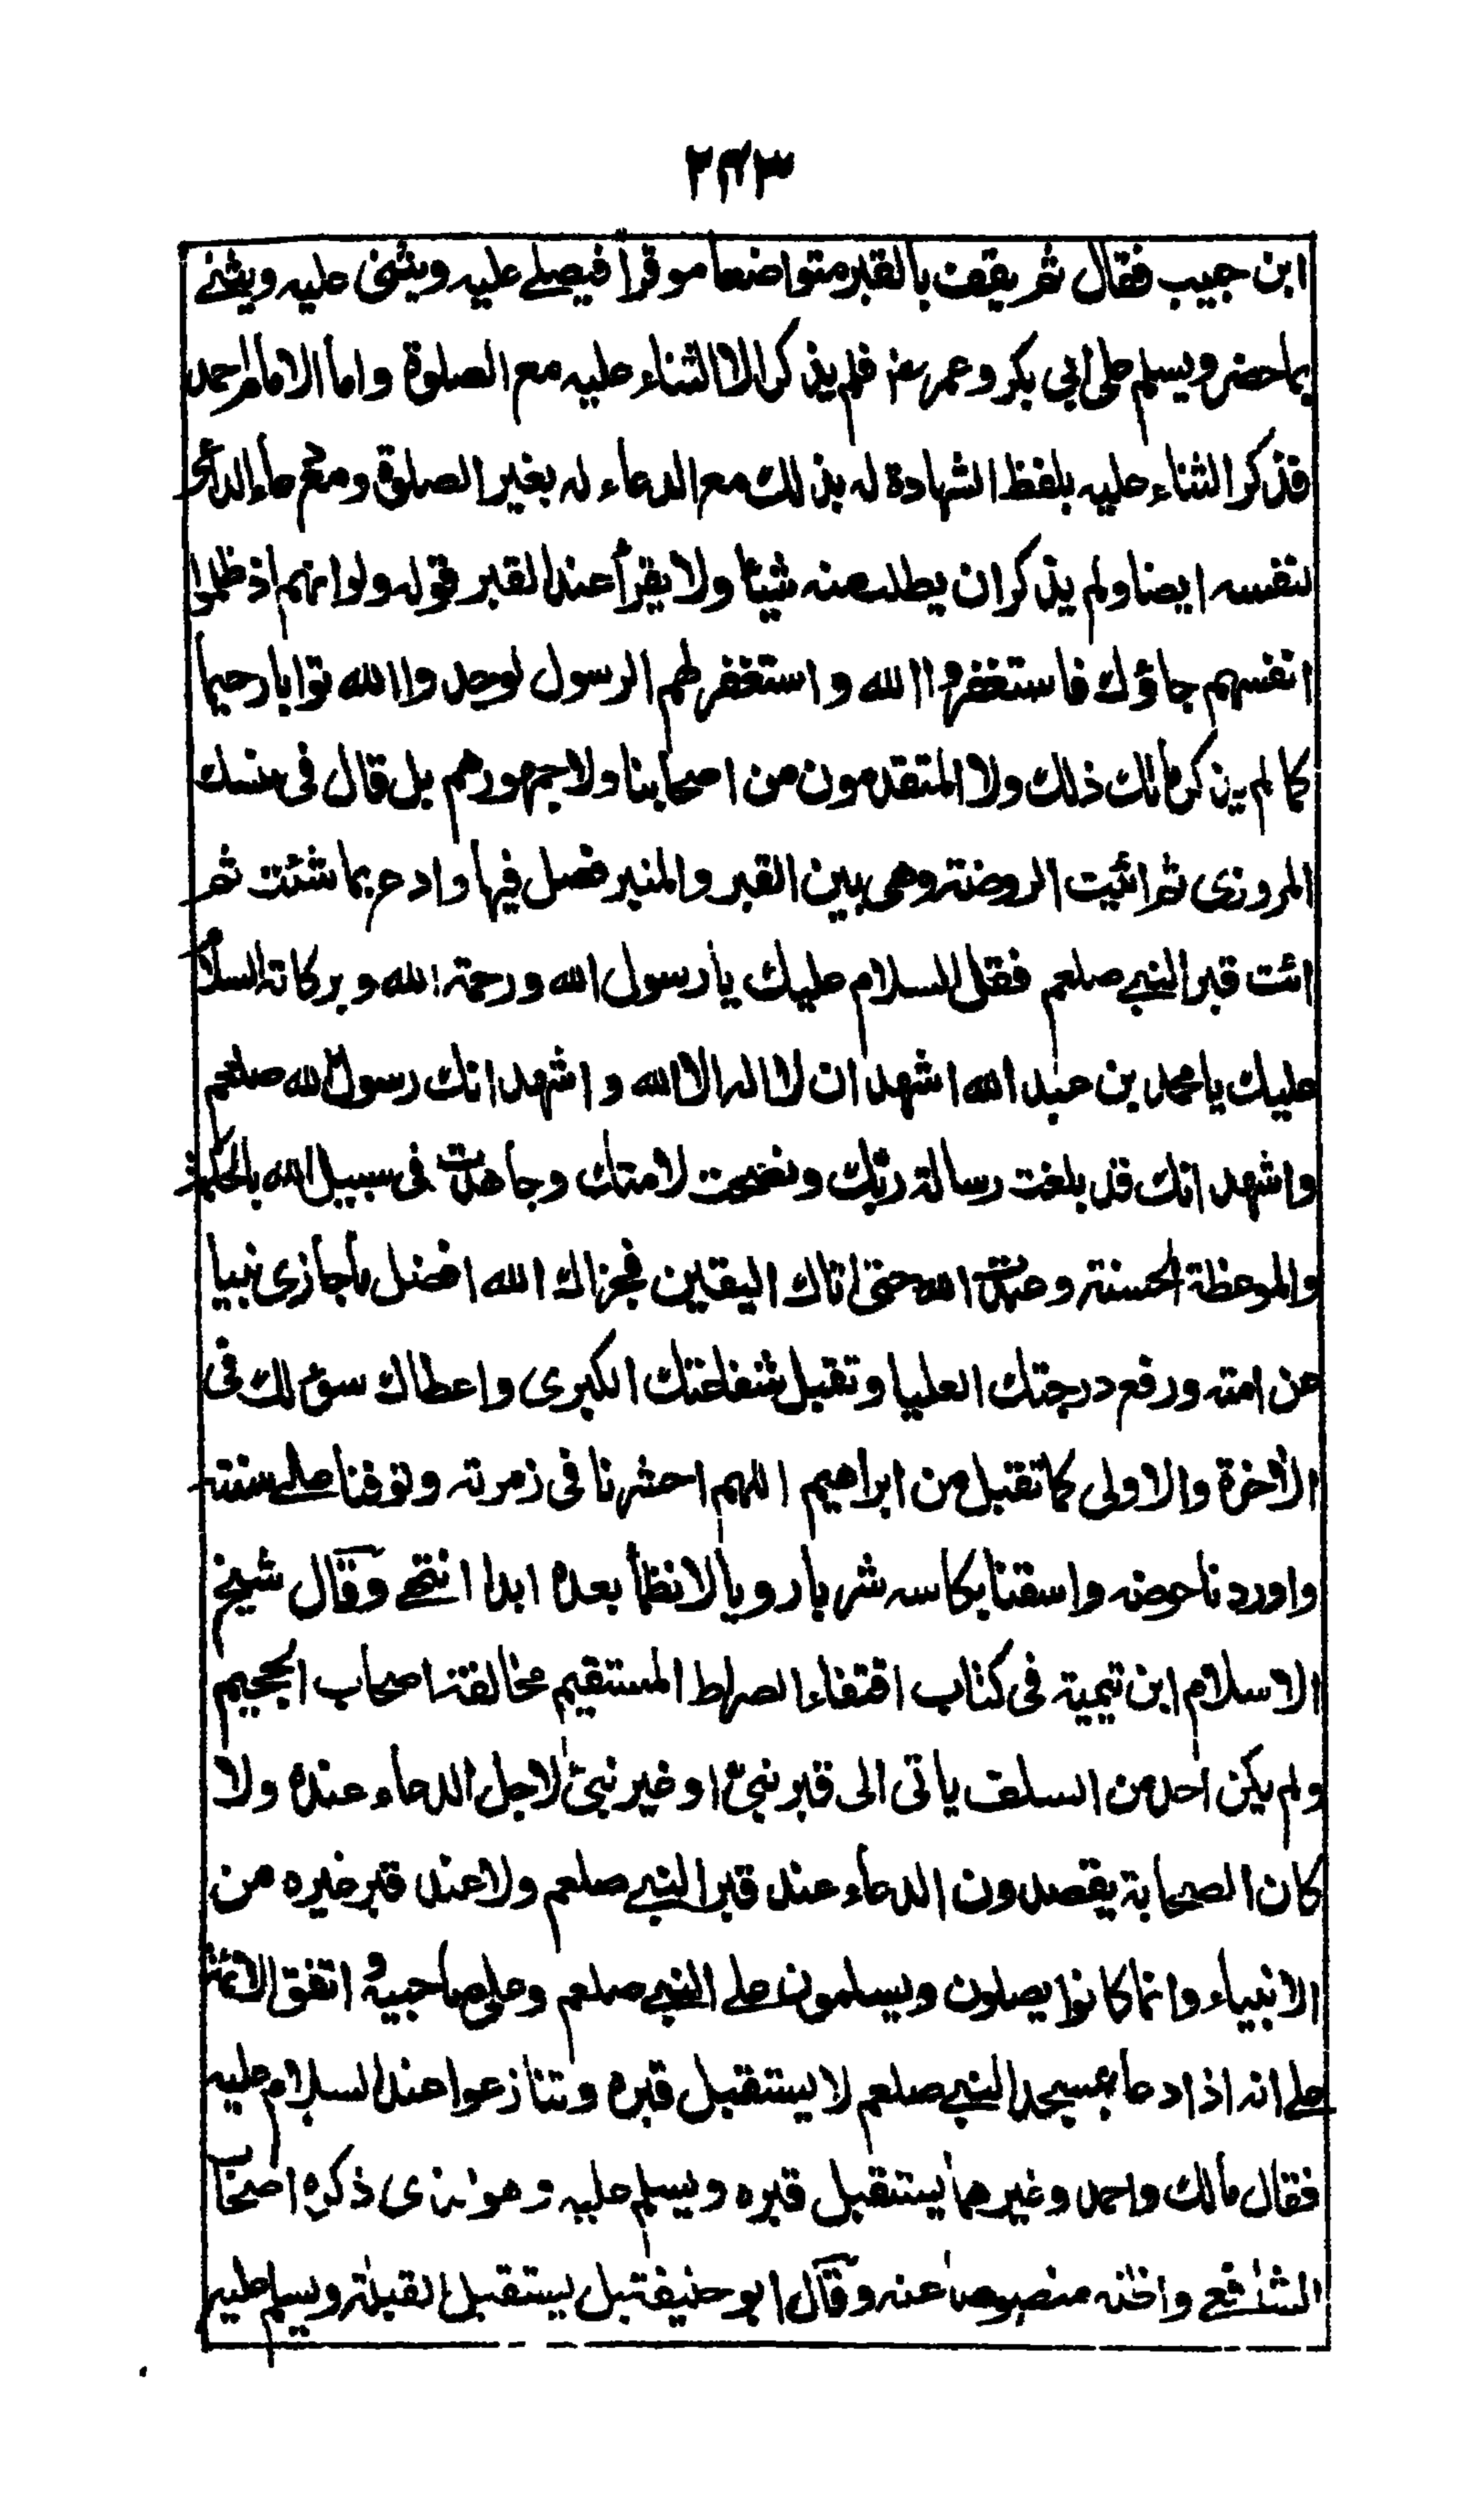 ۲۴۳
ابن حبيب فقال ثم يقف بالقبر متواضعا موقرا فيصلے عليه ويثنى عليه ويثنے
بما حضر ويسلم على ابي بكر وعمر فلم يذكر الا الثناء عليه مع الصلوة واما الامام احمد
فذكر الثناء عليه بلفظ الشهادة له بذلك مع الدعاء له بغير الصلوة ومع دعاء الداعى
لنفسه ايضا ولم يذكر ان يطلب منه شيئا ولا يقرأ عند القبر قوله ولو انهم اذ ظلموا
انفسهم جاؤك فاستغفروا الله واستغفر لهم الرسول لوجدوا الله توابا رحيما
كما لم يذكر مالك ذلك ولا المتقدمون من اصحابنا ولا جمهورهم بل قال فى منسك
المروزى ثم ائت الروضة وهى بين القبر والمنبر فصل فيها وادع بما شئت ثم
ائت قبر النبے صلعم فقل السلام عليك يا رسول الله ورحمة الله وبركاته السلام
عليك يا محمد بن عبد الله اشهد ان لا اله الا الله واشهد انك رسول الله صلعم
واشهد انك قد بلغت رسالة ربك ونصحت لامتك وجاهدت فى سبيل الله بالحكمة
والموعظة الحسنة وعبدت الله حتى اتاك اليقين فجزاك الله افضل ما جازى نبيا
عن امته ورفع درجتك العليا وتقبل شفاعتك الكبرى واعطاك سؤلك فى
الآخرة والاولى كما تقبل من ابراهيم اللهم احشرنا فى زمرته وتوفنا علے سنته
واوردنا حوضه واسقنا بكاسه شربا رويا لا نظمأ بعده ابدا انتهے وقال شيخ
الاسلام ابن تيمية فى كتاب اقتفاء الصراط المستقيم مخالفة اصحاب الجحيم
ولم يكن احد من السلف ياتى الى قبر نبى او غير نبى لاجل الدعاء عنده ولا
كان الصحابة يقصدون الدعاء عند قبر النبے صلعم ولا عند قبر غيره من
الانبياء وانما كانوا يصلون ويسلمون علے النبے صلعم وعلى صاحبيه اتفق الائمة
علے انه اذا دعا بمسجد النبے صلعم لا يستقبل قبره وتنازعوا عند السلام عليه
فقال مالك واحمد وغيرهما يستقبل قبره ويسلم عليه وهو الذى ذكره اصحاب
الشافعے واظنه منصوصا عنه وقال ابو حنيفة بل يستقبل القبلة ويسلم عليه